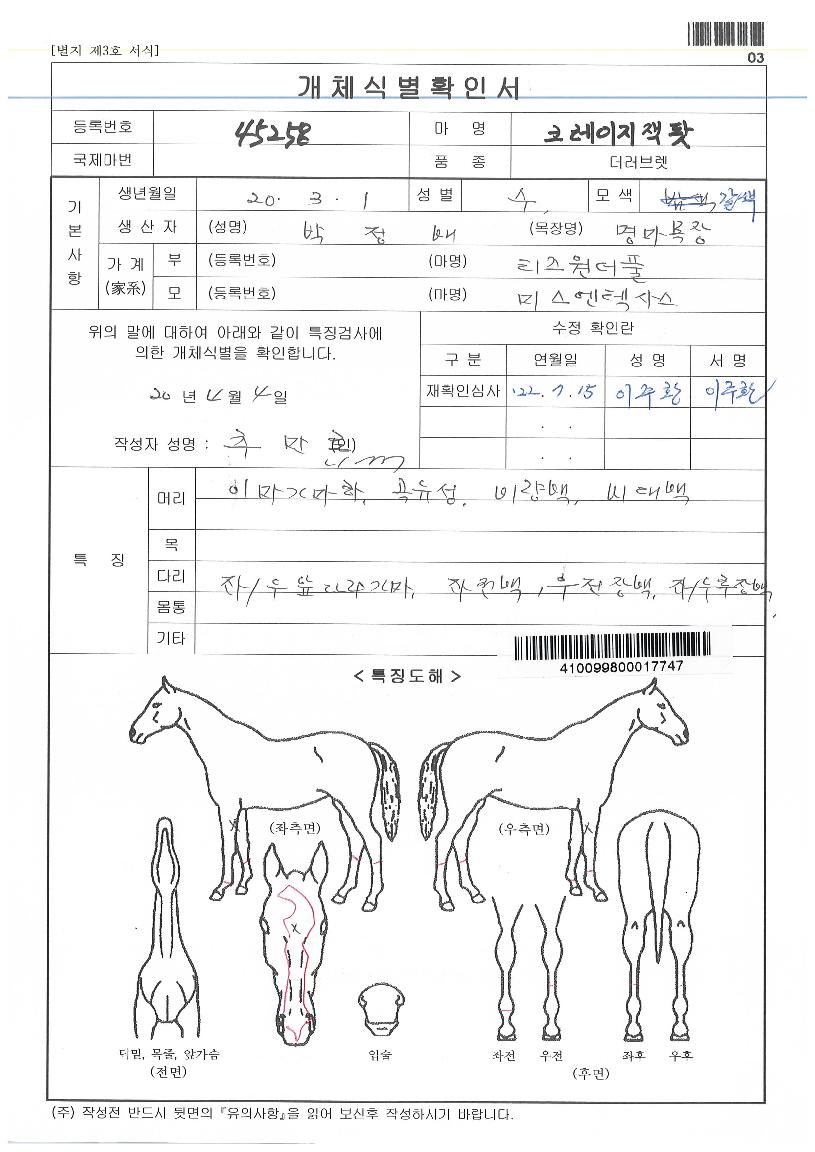 [별지 제3호 서식]
03
개체식별확인서
등록번호 45258 마 명 코레이지잭팟
국제마번 품 종 더러브렛
기본사항
생년월일 20. 3. 1 성별 수 모색 갈색
생산자 (성명) 박 정 배 (목장명) 명마목장
가계(家系) 부 (등록번호) (마명) 티즈원더풀
모 (등록번호) (마명) 미스엔텍사스
위의 말에 대하여 아래와 같이 특징검사에
의한 개체식별을 확인합니다.
20 년 4 월 4 일
작성자 성명 : 추 만 (인)
수정 확인란
구 분 연월일 성 명 서 명
재확인심사 '22. 7. 15 이주환 이주환
. .
. .
특 징
머리 이마가마하, 곡유성, 비량백, 비대백
목
다리 좌/우앞다리가마, 좌전백, 우전장백, 좌/우후장백,
몸통
기타
410099800017747
< 특징도해 >
(좌측면) (우측면)
턱밑, 목줄, 앞가슴
(전면)
입술
좌전 우전 좌후 우후
(후면)
(주) 작성전 반드시 뒷면의 『유의사항』을 읽어 보신후 작성하시기 바랍니다.